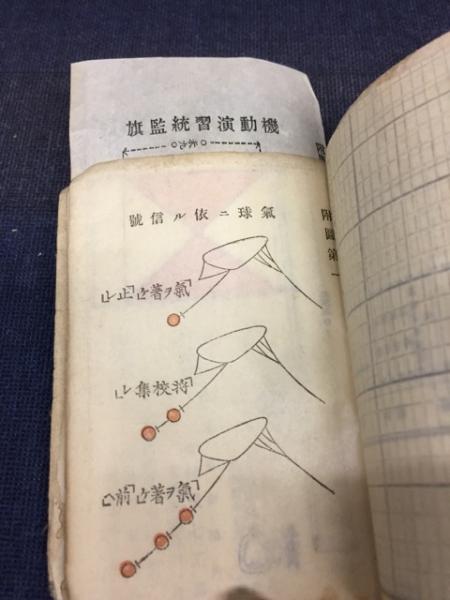 機動演習統監旗
附圖第一
氣球ニ依ル信號
「氣ヲ著ケ」「止レ」
「将校集レ」
「氣ヲ著ケ」「前ヘ」